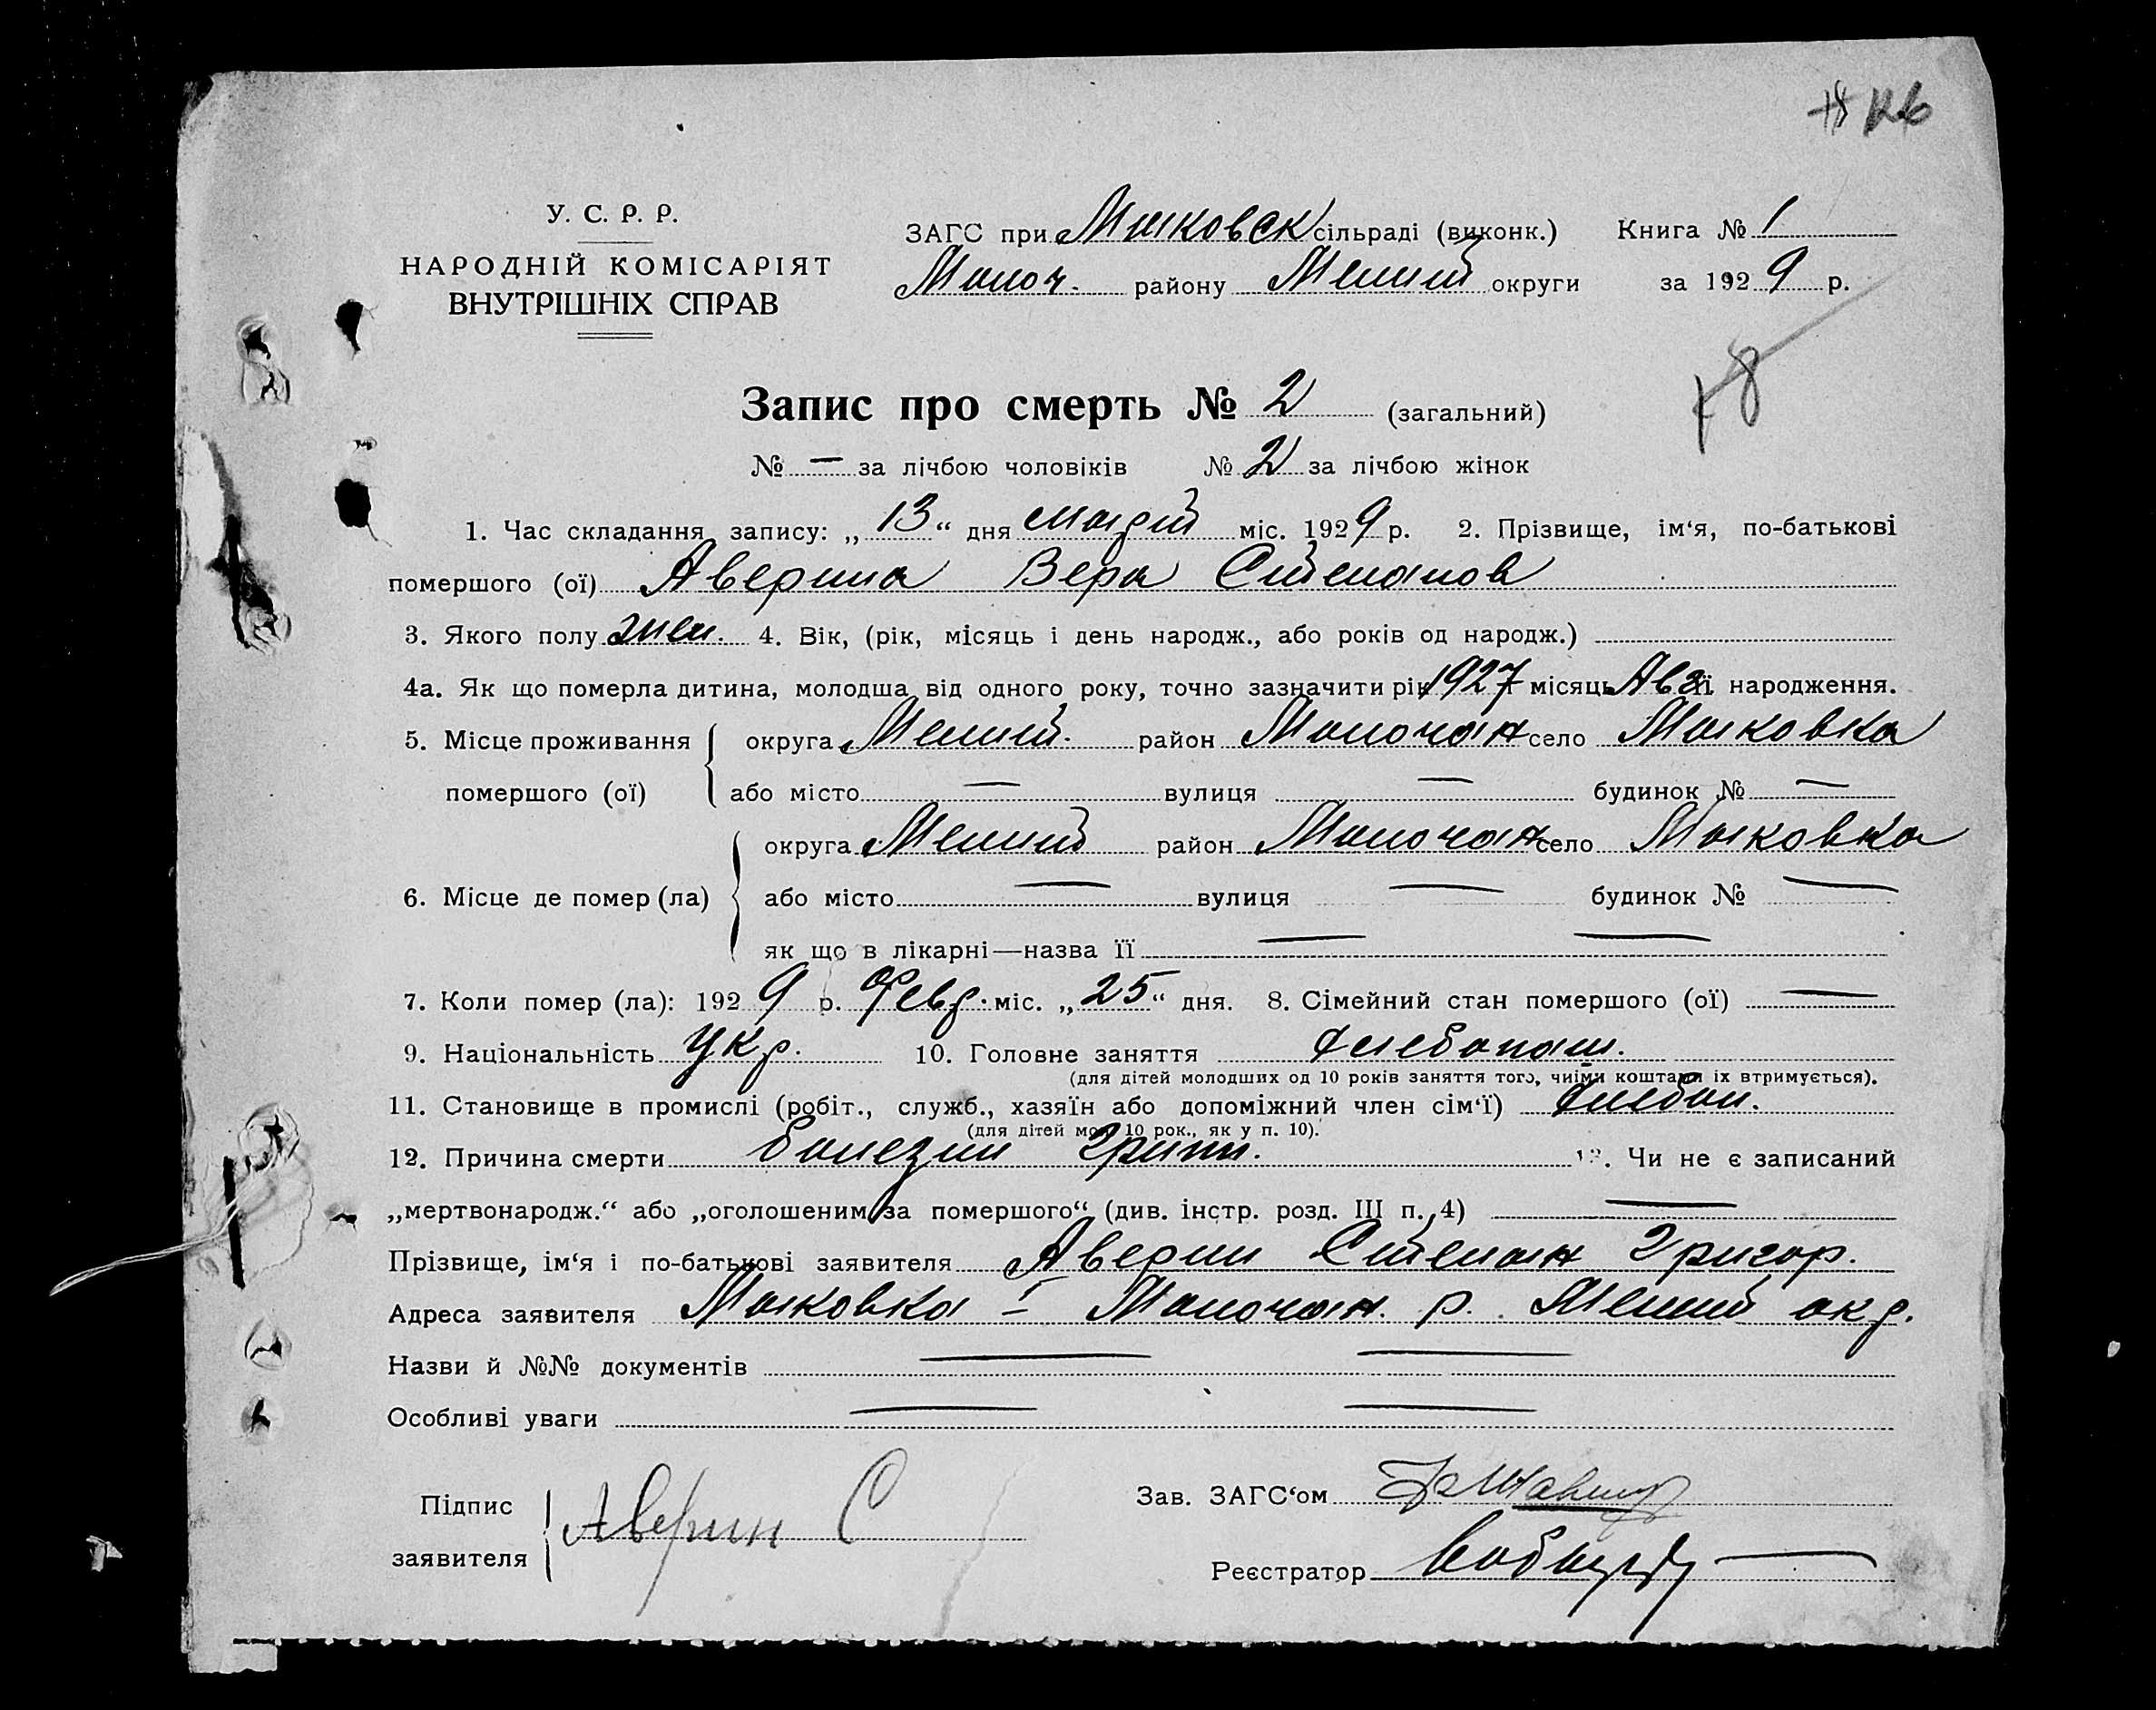 126
У. С. Р. Р.
НАРОДНІЙ КОМІСАРІЯТ
ВНУТРІШНІХ СПРАВ
ЗАГС при Масковск сільраді (виконк.) Книга № 1
Молоч. району Мелит округи за 1929 р.
78
Запис про смерть № 2 (загальний)
№ — за лічбою чоловіків № 2 за лічбою жінок
1. Час складання запису: „13“ дня марта міс. 1929 р. 2. Прізвище, ім‘я, по-батькові
помершого (ої) Аверина Вера Степанов
3. Якого полу жен. 4. Вік, (рік, місяць і день народж., або років од народж.)
4а. Як що померла дитина, молодша від одного року, точно зазначити рік 1927 місяць Авг її народження.
5. Місце проживання помершого (ої) округа Мелит. район Молочан село Масковка
або місто — вулиця — будинок № —
6. Місце де помер (ла) округа Мелит район Молочан село Масковка
або місто — вулиця — будинок № —
як що в лікарні—назва її — —
7. Коли помер (ла): 1929 р. Февр. міс. „25“ дня. 8. Сімейний стан помершого (ої) —
9. Національність Укр. 10. Головне заняття Хлебопаш.
(для дітей молодших од 10 років заняття того, чиїми коштами їх втримується).
11. Становище в промислі (робіт., служб., хазяїн або допоміжний член сім‘ї) Хлебоп.
(для дітей мол. 10 рок., як у п. 10).
12. Причина смерти Болезни Грипп. 13. Чи не є записаний
„мертвонародж.“ або „оголошеним за помершого“ (див. інстр. розд. III п. 4) —
Прізвище, ім‘я і по-батькові заявителя Аверин Степан Григор.
Адреса заявителя Масковка - I Молочан. р. Мелит окр.
Назви й №№ документів — —
Особливі уваги — —
Підпис заявителя Аверин С
Зав. ЗАГС‘ом
Реєстратор